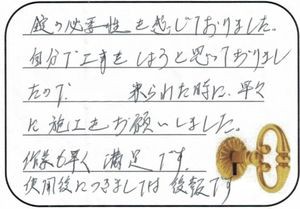 錠の必要性を感じておりました。
自分で工事をしようと思っておりまし
たので 来られた時に、早々
に施工をお願いしました。
作業も早く 満足です。
使用後につきましては 後報です